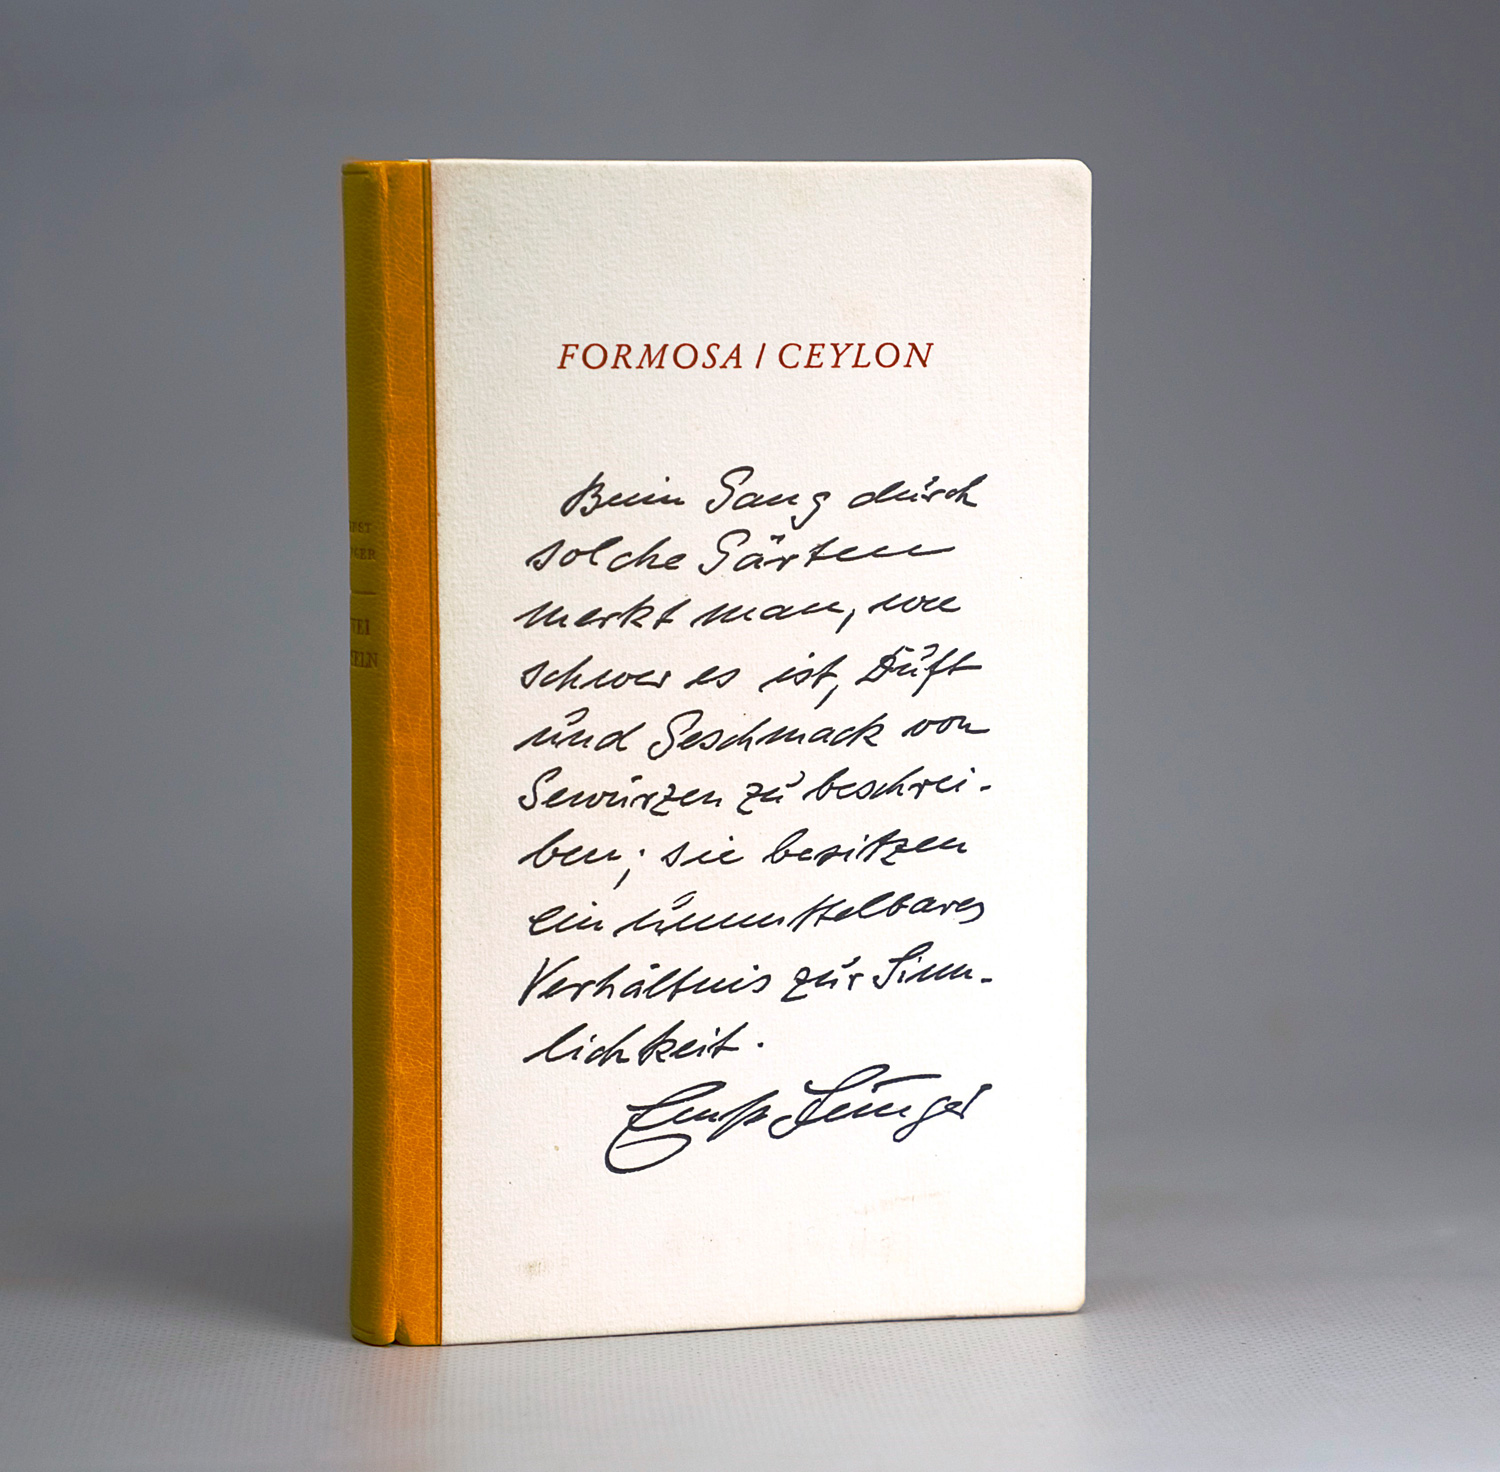 FORMOSA / CEYLON
Beim Gang durch
solche Gärten
merkt man, wie
schwer es ist, Duft
und Geschmack von
Gewürzen zu beschrei-
ben; sie besitzen
ein unmittelbares
Verhältnis zur Sinn-
lichkeit.
Ernst Jünger